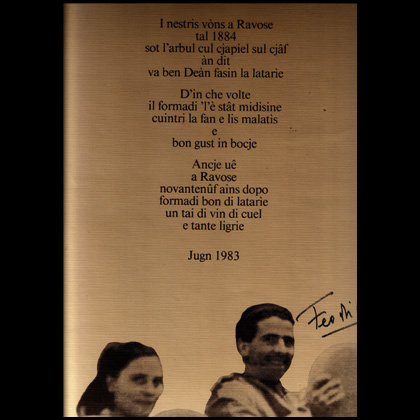 I nestris vòns a Ravose
tal 1884
sot l'arbul cul cjapiel sul cjâf
àn dit
va ben Deàn fasin la latarie
D'in che volte
il formadi 'l'è stât midisine
cuintri la fan e lis malatis
e
bon gust in bocje
Ancje uê
a Ravose
novantenûf ains dopo
formadi bon di latarie
un tai di vin di cuel
e tante ligrie
Jugn 1983